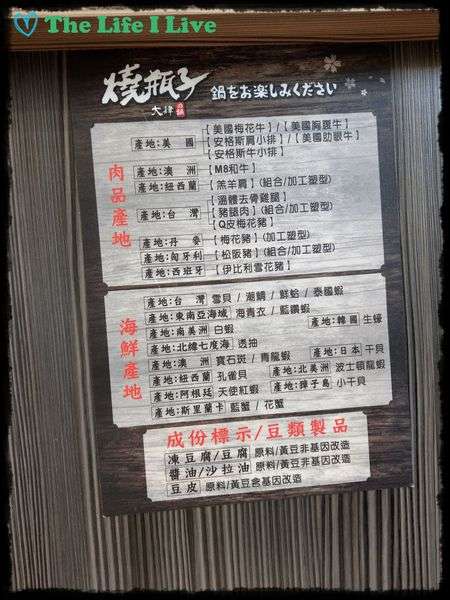 The Life I Live
燒瓶子
大津
鍋をお楽しみください
肉品產地
產地:美國【美國梅花牛】/【美國胸腹牛】
【安格斯肩小排】/【美國肋眼牛】
【安格斯牛小排】
產地:澳洲【M8和牛】
產地:紐西蘭【羔羊肩】(組合/加工塑型)
產地:台灣【溫體去骨雞腿】
【豬頸肉】(組合/加工塑型)
【Q皮梅花豬】
產地:丹麥【梅花豬】(加工塑型)
產地:匈牙利【松阪豬】(組合/加工塑型)
產地:西班牙【伊比利雪花豬】
海鮮產地
產地:台灣 雪貝 / 潮鯛 / 鮮蛤 / 泰國蝦
產地:東南亞海域 海青衣 / 藍鑽蝦
產地:南美洲 白蝦 產地:韓國 生蠔
產地:北緯七度海 透抽
產地:澳洲 寶石斑 / 青龍蝦 產地:日本 干貝
產地:紐西蘭 孔雀貝 產地:北美洲 波士頓龍蝦
產地:阿根廷 天使紅蝦 產地:獐子島 小干貝
產地:斯里蘭卡 藍蟹 / 花蟹
成份標示/豆類製品
凍豆腐/豆腐 原料/黃豆非基因改造
醬油/沙拉油 原料/黃豆非基因改造
豆皮 原料/黃豆含基因改造